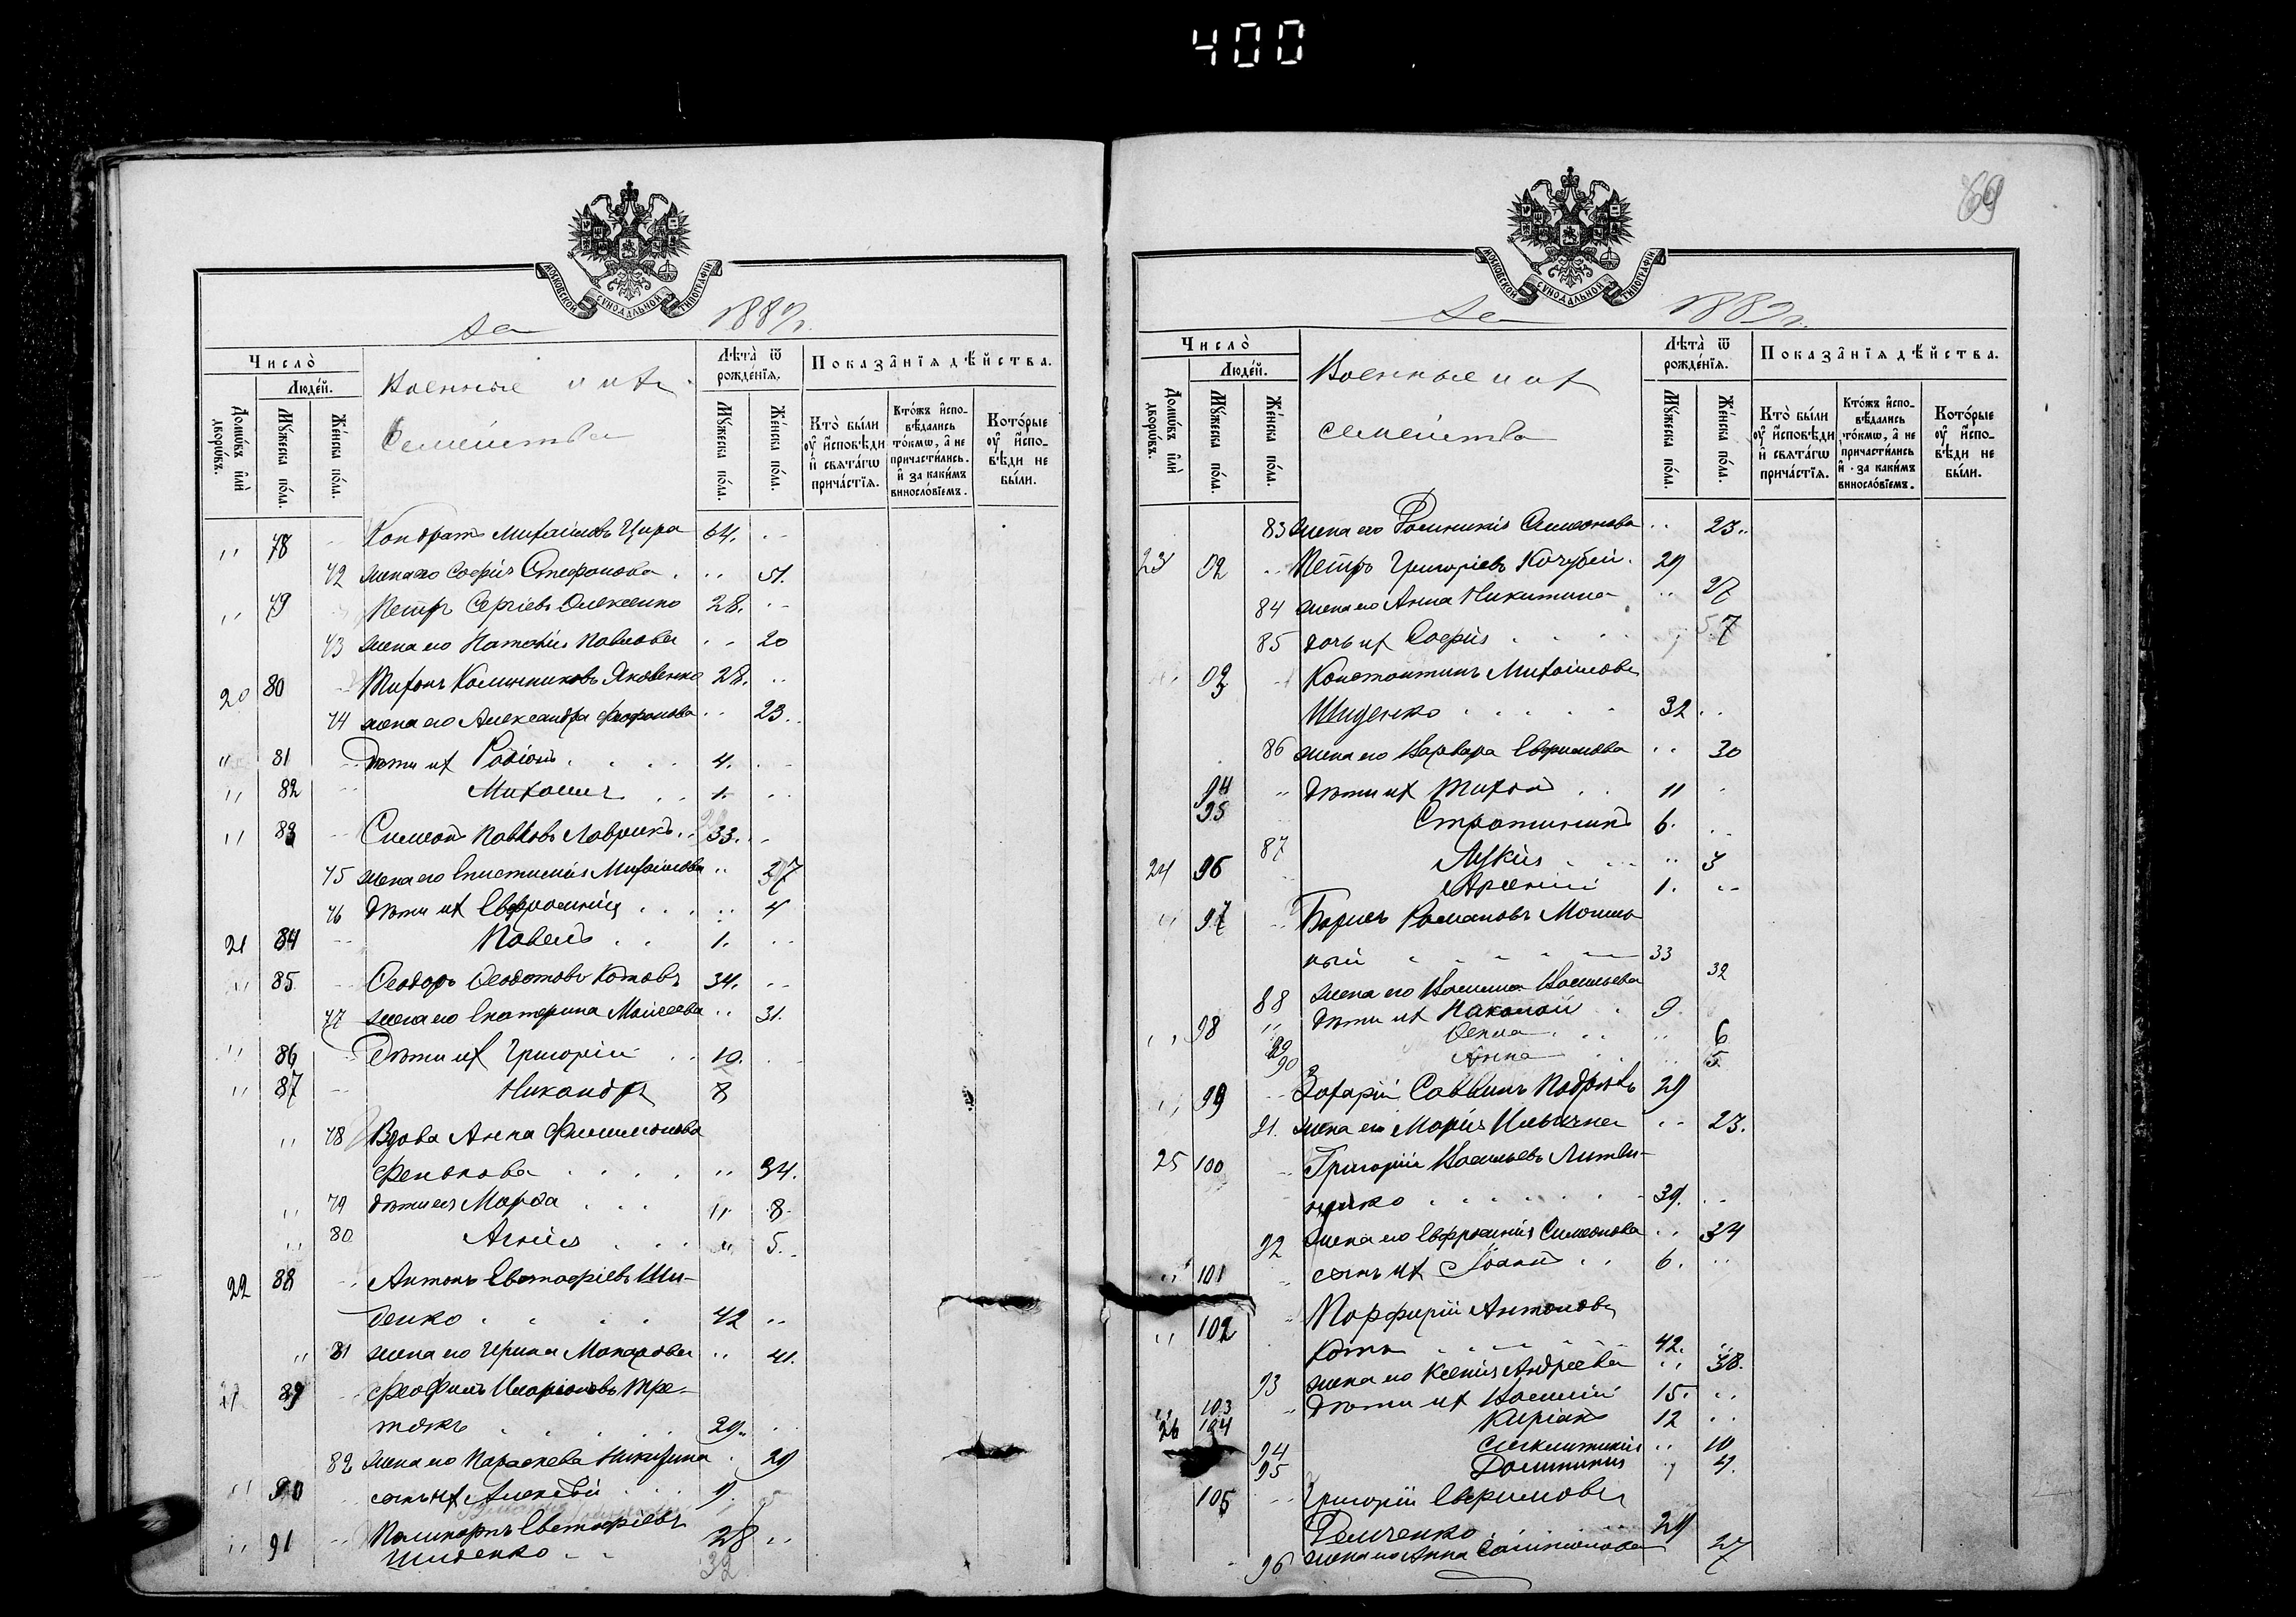 400
МОСКОВСКОЙ СѴНОДАЛЬНОЙ ТИПОГРАФІИ
за 1889 г.
Число̀
Люде́й.
Домѡ́въ и҆лѝ дворѡ́въ.
Мꙋ́жеска по́ла.
Же́нска по́ла.
Военные и ихъ
Семейства
Лѣ́та ѿ рожде́нїѧ.
Мꙋ́жеска по́ла.
Же́нска по́ла.
Показа̑нїѧ дѣ́йства.
Кто̀ бы́ли оу҆ и҆сповѣди и҆ свѧта́гѡ прича́стїѧ.
Кто́жъ и҆спо- вѣдались то́кмѡ, а҆ не причасти́лись. и҆ за каки́мъ винослѡ́вїемъ.
Кото́рые оу҆ и҆спо- вѣди не бы́ли.
" 78 Кондратъ Михаиловъ Цира 64.
72 жена его Софія Стефанова 51.
" 79 Петръ Сергіевъ Олексенко 28.
73 жена его Наталія Павлова 20
20 80 Тихонъ Калинниковъ Яковенко 28.
74 жена его Александра Феофанова 23.
" 81 дѣти ихъ Родіонъ 4.
" 82 Михаилъ 1.
" 83 Симеонъ Павловъ Лаврикъ 33.
75 жена его Епистимія Михаилова 27
76 дѣти ихъ Евфросинія 4
21 84 Павелъ 1.
" 85 Ѳеодоръ Ѳеодотовъ Котовъ 34.
77 жена его Екатерина Моисеева 31.
" 86 Дѣти ихъ Григорій 10.
" 87 Никандръ 8
" 78 Вдова Анна Филимонова
Фенькова " 34.
" 79 дѣти ея Марѳа " 8.
" 80 Агнія " 5.
22 88 Антонъ Евстафіевъ Ши-
денко 42
" 81 жена его Ирина Макарова 41.
89 Феофилъ Иларіоновъ Тре-
тякъ 29.
82 жена его Параскева Никитина 29
" 90 сынъ ихъ Алексѣй 1.
" 91 Поликарпъ Евстафіевъ 28
Шиденко 32
69
МОСКОВСКОЙ СѴНОДАЛЬНОЙ ТИПОГРАФІИ
за 1889 г.
Число̀
Люде́й.
Домѡ́въ и҆лѝ дворѡ́въ.
Мꙋ́жеска по́ла.
Же́нска по́ла.
Военные и ихъ
семейства
Лѣ́та ѿ рожде́нїѧ.
Мꙋ́жеска по́ла.
Же́нска по́ла.
Показа̑нїѧ дѣ́йства.
Кто̀ бы́ли оу҆ и҆сповѣди и҆ свѧта́гѡ прича́стїѧ.
Кто́жъ и҆спо- вѣдались то́кмѡ, а҆ не причасти́лись и҆ за каки́мъ винослѡ́вїемъ.
Кото́рые оу҆ и҆спо- вѣди не бы́ли.
83 жена его Домникія Симеонова 23.
23 92 Петръ Григоріевъ Кочубей 29
84 жена его Анна Никитина 27
85 дочь ихъ Софія 7
93 Константинъ Михаиловъ
Шиденко 32
86 жена его Варвара Евфимова 30
94 дѣти ихъ Тихонъ 11
95 Стратоникъ 6.
87 Лукія 3
24 96 Арсеній 1.
" 97 Борисъ Романовъ Мошно
ный 33
88 жена его Васса Васильева 32
" 98 дѣти ихъ Николай 9
89 Ѳекла 6
90 Анна 5.
" 99 Захарій Саввинъ Подрѣзъ 29
91. жена его Марія Ильична 23.
25 100 Григорій Васильевъ Литви-
ненко 39.
92 жена его Евфросинія Симеонова 34
" 101 сынъ ихъ Іоаннъ 6.
" 102 Порфирій Антоновъ
Котъ 42.
93 жена его Ксенія Андреева 38.
" 103 дѣти ихъ Василій 15.
26 104 Киріакъ 12
94 Синклитикія 10
95 Домникія 4.
105 Григорій Евфимовъ
Демченко 29
96 жена его Анна 27